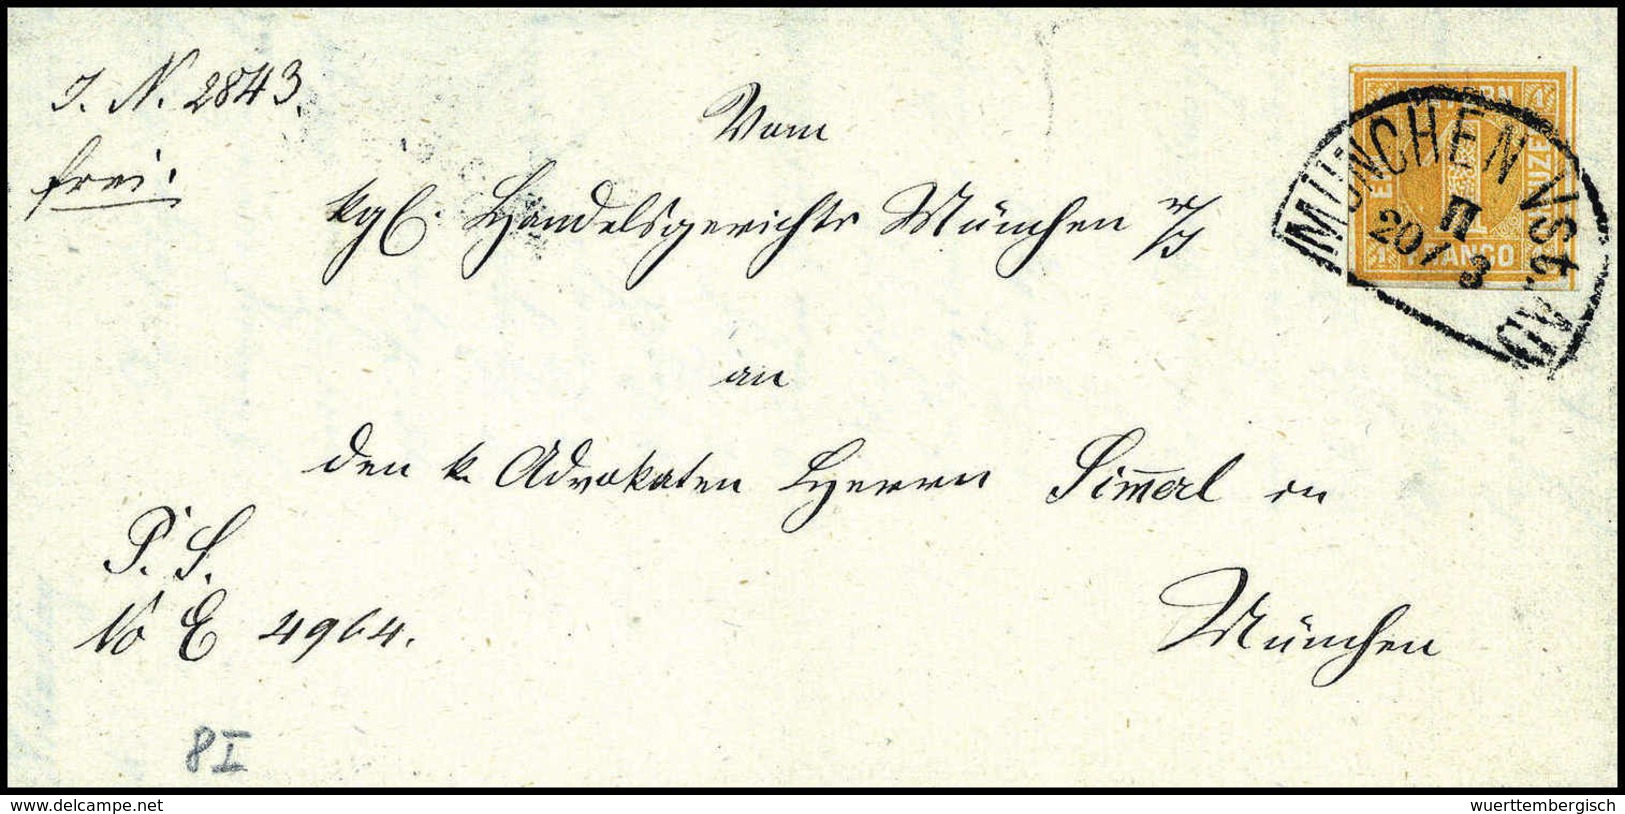 J. N. 2843.
frei.
Vom
kgl. Handelsgerichts München r/I
an
den k. Advokaten Herrn Simerl in
München
P. S.
No E 4964.
8 I
BAYERN
1 KREUZER
FRANCO
MÜNCHEN
II
20/3
www.delcampe.net
wuerttembergisch